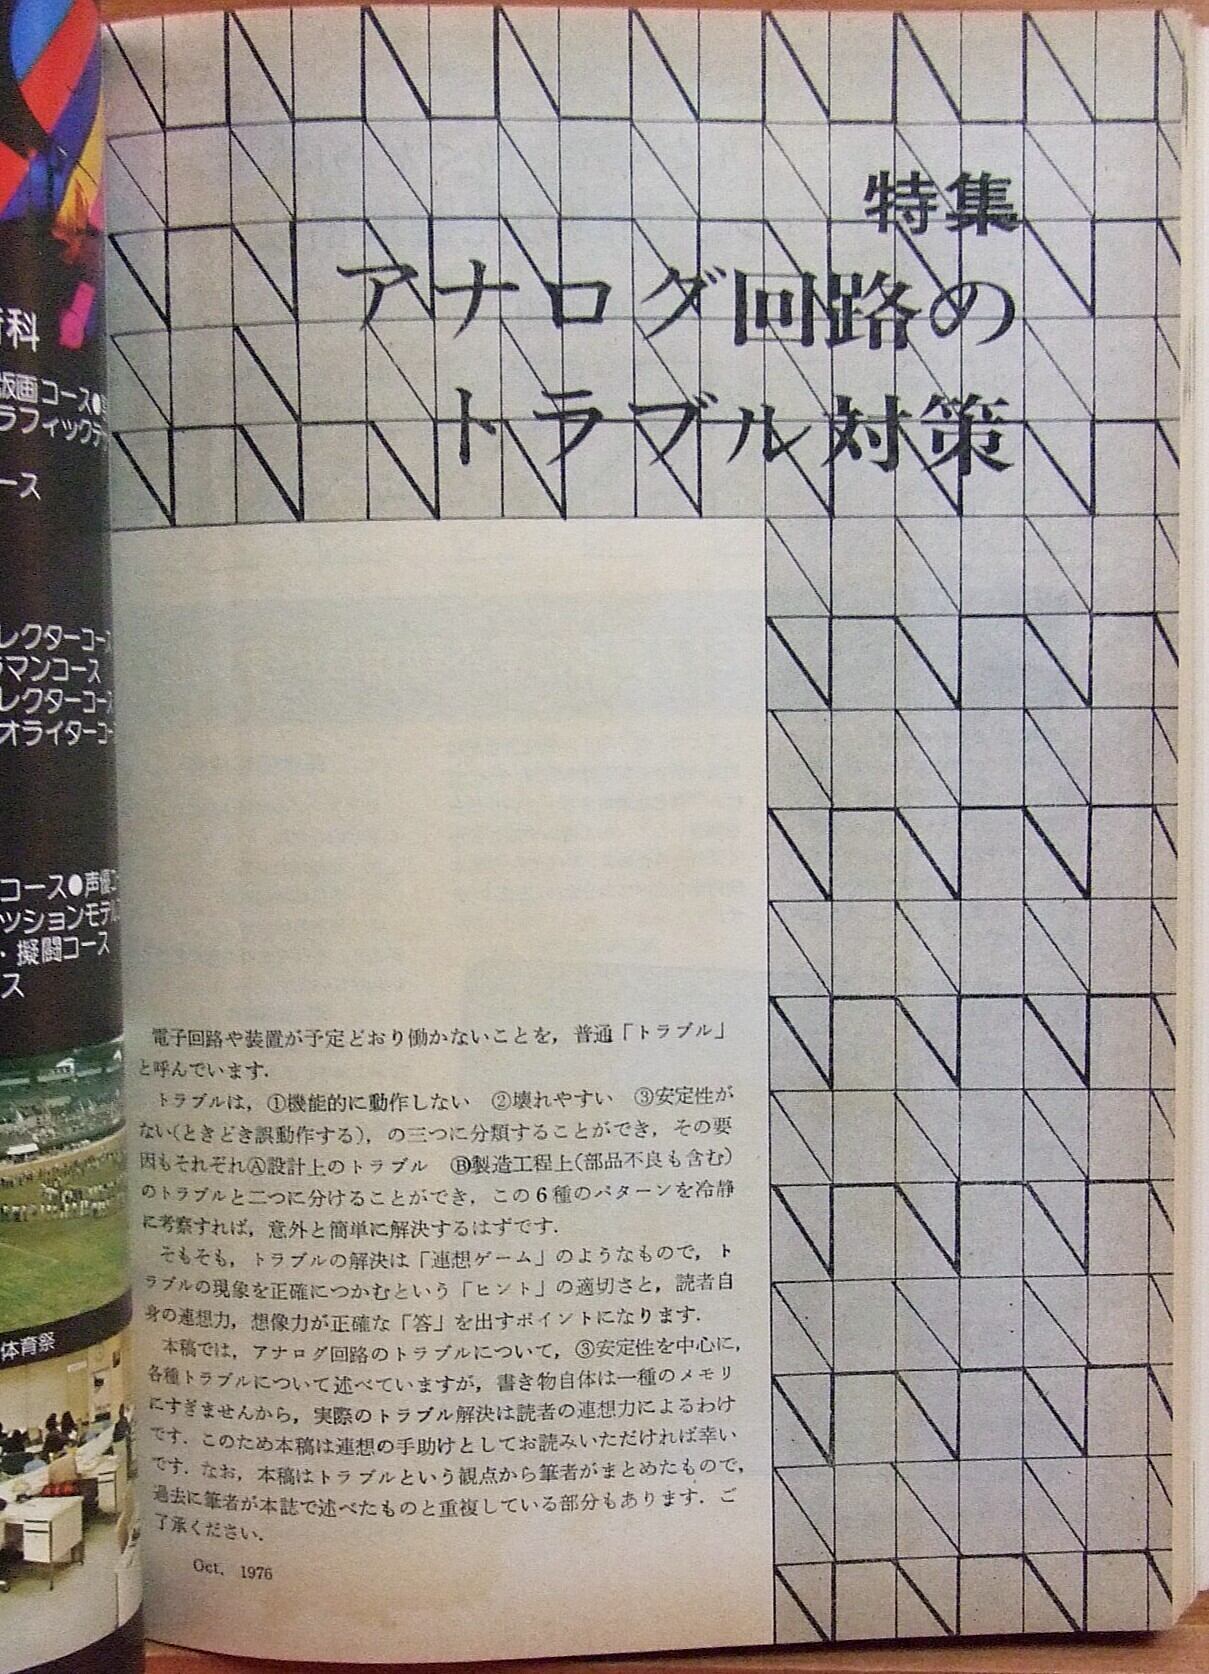 特集
アナログ回路の
トラブル対策
電子回路や装置が予定どおり働かないことを，普通「トラブル」
と呼んでいます．
トラブルは，①機能的に動作しない　②壊れやすい　③安定性が
ない（ときどき誤動作する），の三つに分類することができ，その要
因もそれぞれⒶ設計上のトラブル　Ⓑ製造工程上（部品不良も含む）
のトラブルと二つに分けることができ，この6種のパターンを冷静
に考察すれば，意外と簡単に解決するはずです．
そもそも，トラブルの解決は「連想ゲーム」のようなもので，ト
ラブルの現象を正確につかむという「ヒント」の適切さと，読者自
身の連想力，想像力が正確な「答」を出すポイントになります．
本稿では，アナログ回路のトラブルについて，③安定性を中心に，
各種トラブルについて述べていますが，書き物自体は一種のメモリ
にすぎませんから，実際のトラブル解決は読者の連想力によるわけ
です．このため本稿は連想の手助けとしてお読みいただければ幸い
です．なお，本稿はトラブルという観点から筆者がまとめたもので，
過去に筆者が本誌で述べたものと重複している部分もあります．ご
了承ください．
Oct. 1976
科
版画コース●
ラフィックデ
ース
レクターコース
ラマンコース
レクターコース
オライターコー
コース●声優コ
ッションモデル
・擬闘コース
ス
体育祭